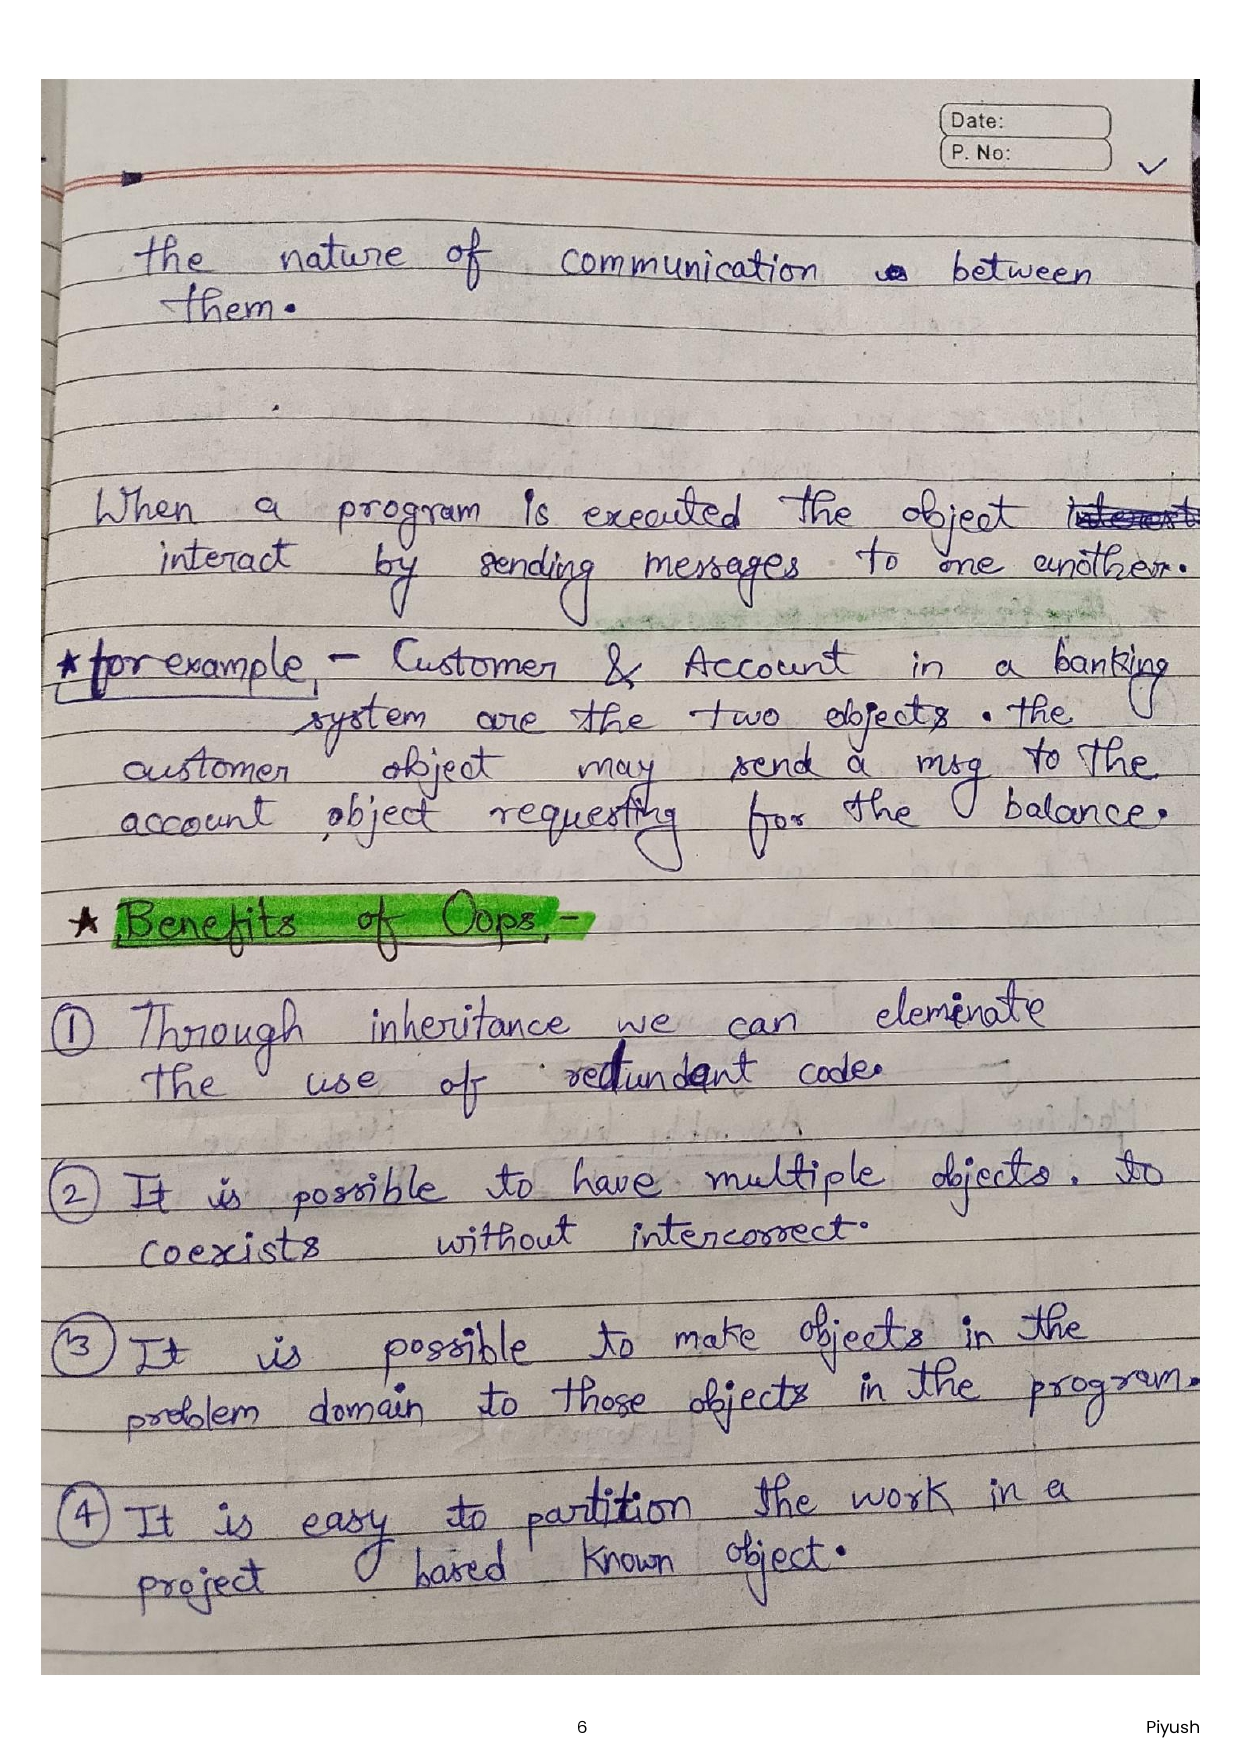 Date:
P. No:
the nature of communication between
them.
When a program is executed the object
interact by sending messages to one another.
★ for example - Customer & Account in a banking
system are the two objects. the
customer object may send a msg to the
account object requesting for the balance.
★ Benefits of Oops -
① Through inheritance we can eleminate
the use of redundant code.
② It is possible to have multiple objects. to
coexists without intercorrect.
③ It is possible to make objects in the
problem domain to those objects in the program.
④ It is easy to partition the work in a
project based known object.
6
Piyush